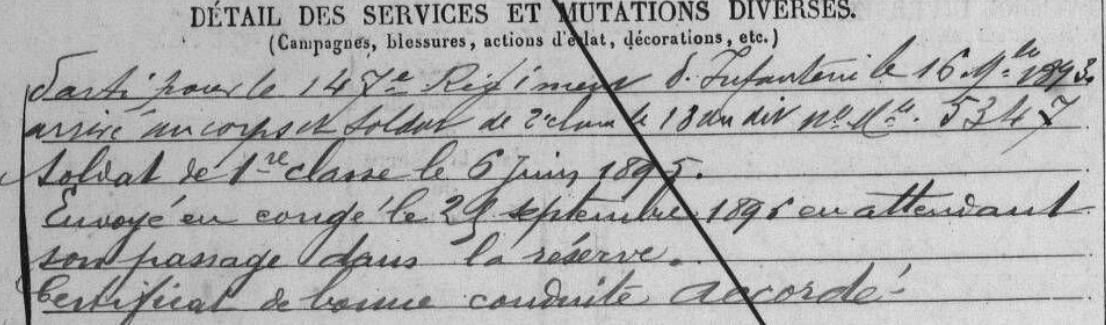 DÉTAIL DES SERVICES ET MUTATIONS DIVERSES.
(Campagnes, blessures, actions d'éclat, décorations, etc.)
Parti pour le 147e Régiment d'Infanterie le 16 9bre 1893.
arrivé au corps et soldat de 2e classe le 18 du dit no Mle. 5347
soldat de 1re classe le 6 juin 1895.
Envoyé en congé le septembre 1896 en attendant
son passage dans la réserve.
Certificat de bonne conduite Accordé